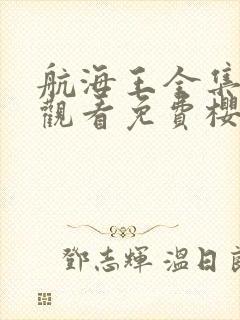 航海王全集
觀看免費櫻
鄧志輝 溫日良